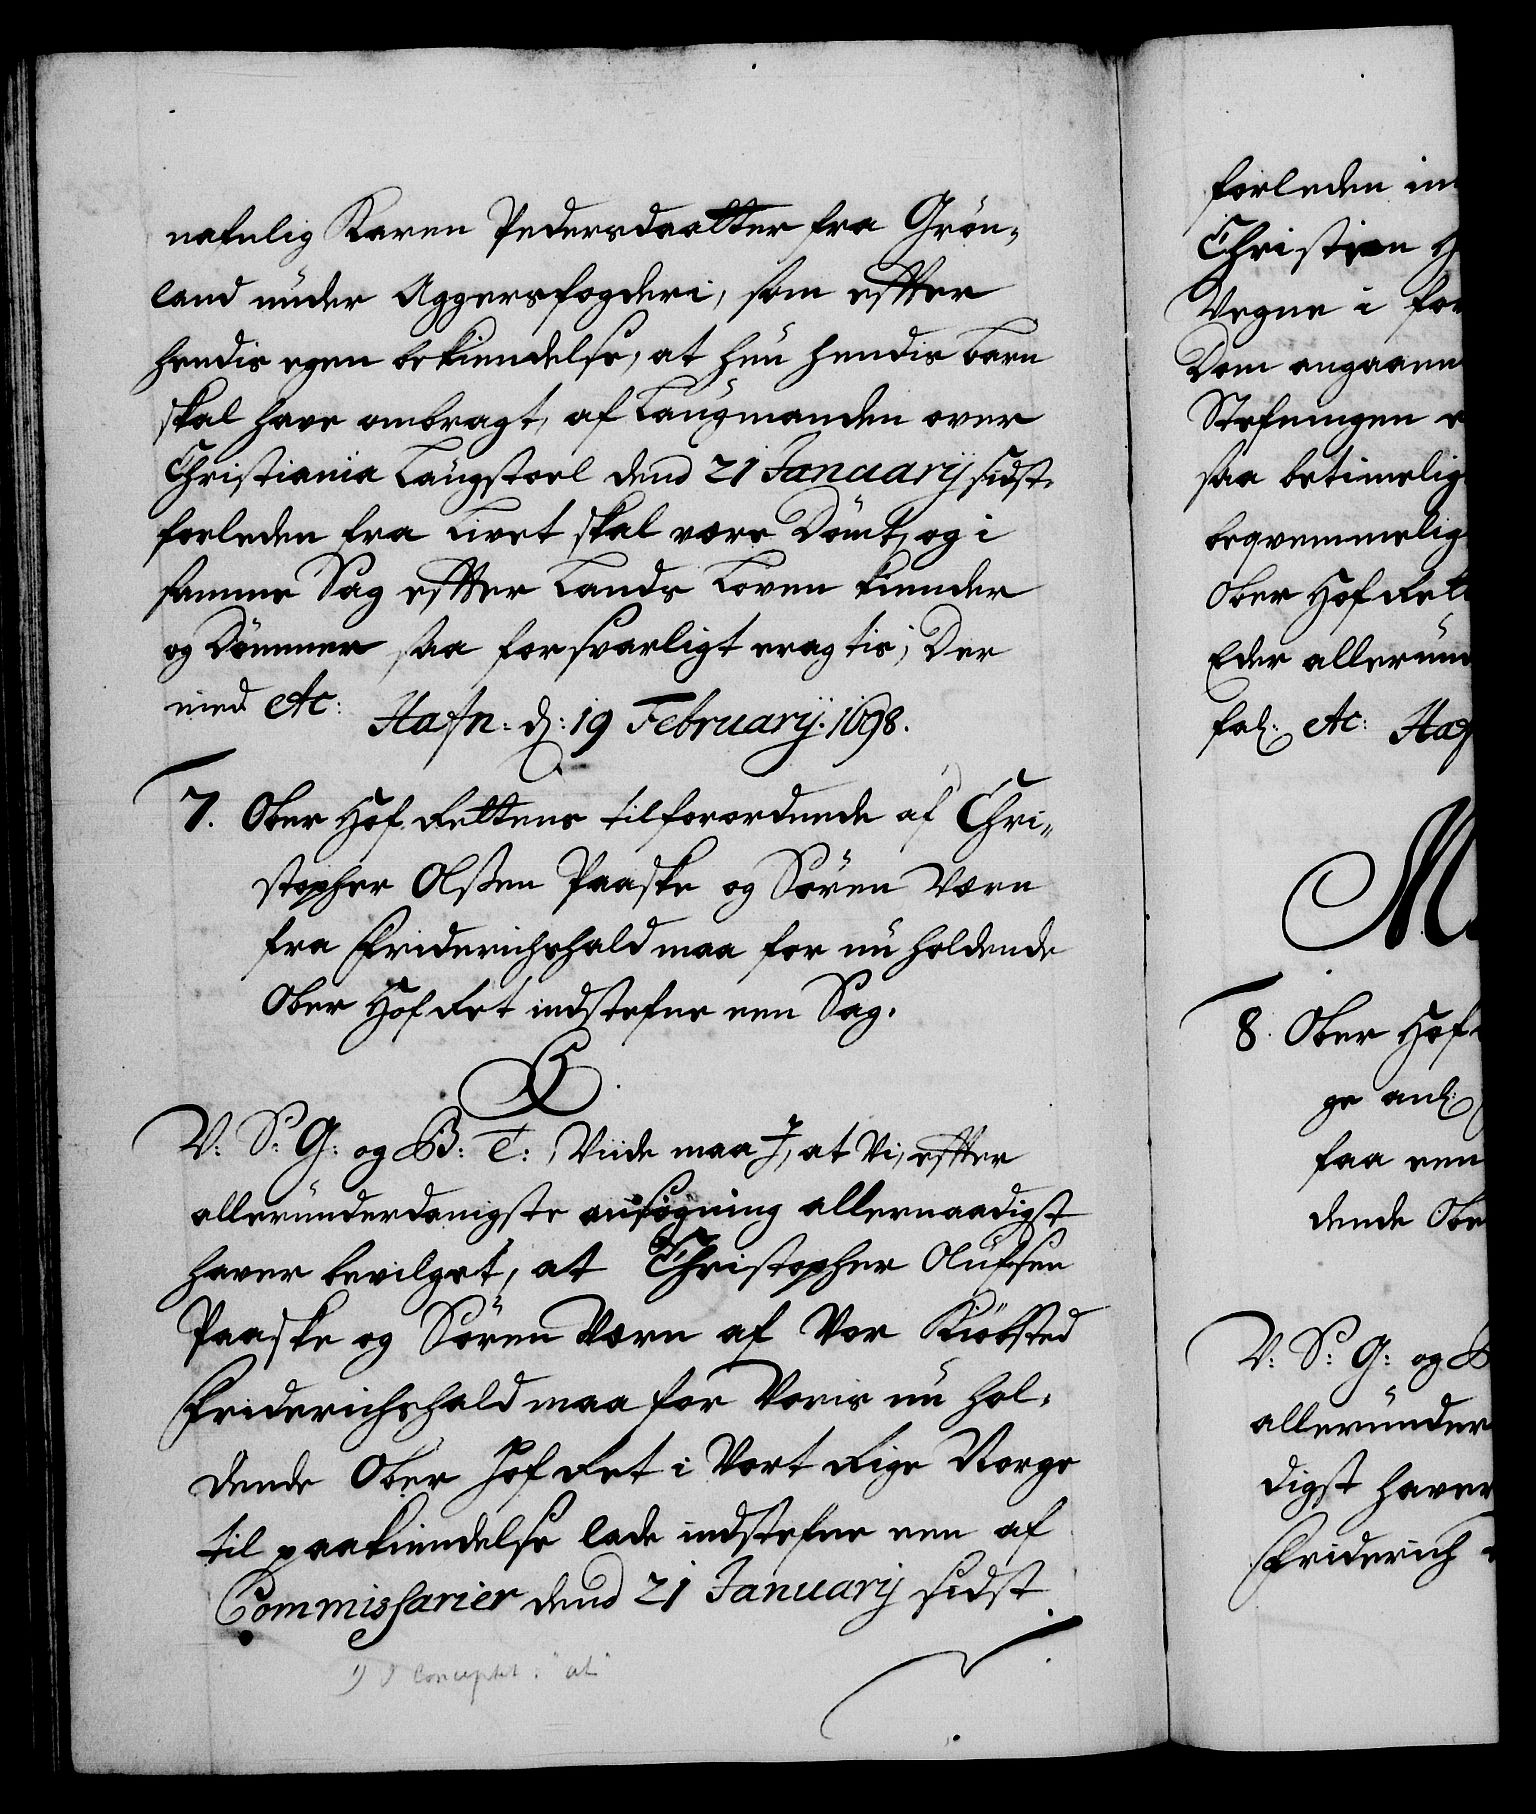 nafnlig Karen Pedersdaatter fra Grön-
land under Aggersfogderi, som effter
hendis egen bekiendelse, at hun hendis barn
skal have ombragt, af Laugmanden over
Christiania Laugstoel dend 21 Januarij sidst-
forleden fra Livet skal være Dömt, og i
samme Sag effter Lands Loven kiender
og Dömmer saa forsvarligt eragtis; Der
med etc: Hafn: d: 19 Februarij. 1698.
7. Ober Hof Rettens tilforordnede af Chri-
stopher Olßen Paaske og Sören Værn
fra Friderichshald maa for nu holdende
Ober Hof Ret indstefne een Sag.
V: S: G: og B: T:, Viide maa I, at Vi, effter
allerunderdanigste ansögning allernaadigst
haver bevilget, at Christopher Olufsen
Paaske og Sören Værn af Vor Kiöbsted
Friderichshald maa for Voris nu hol-
dende Ober Hof Ret i Vort Rige Norge
til paakiendelse lade indstefne een af
Commissarier dend 21 Januarij sidst
1) I Conceptet: "at"
forleden
Christian
Vegne i
Dom angaaen
Stefningen
saa betimelig
beqvemmelig
Ober Hof Rett
Eder allerund
fal: etc: Haf
8. Ober Hof
ge anl:
faa een
dende Obe
V: S: G: og B
allerunder
digst haver
Friderich